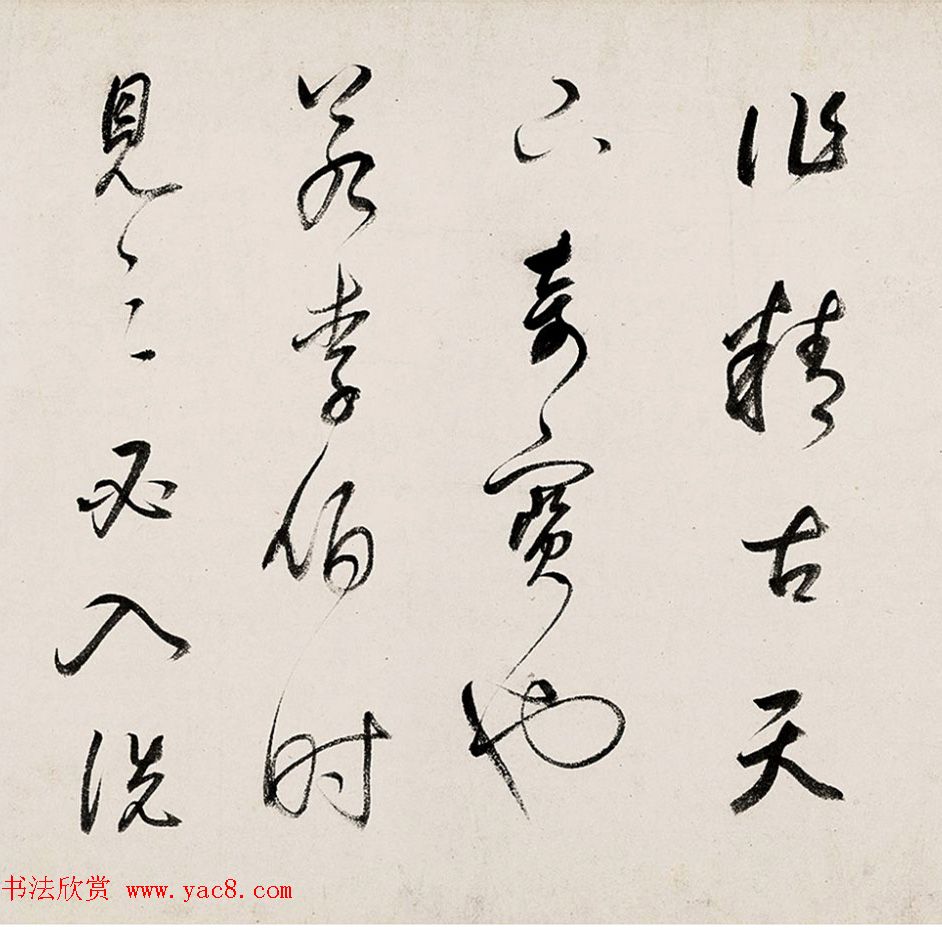 作精古天
下奇寶也
若李伯时
見之必入洗
书法欣赏 www.yac8.com